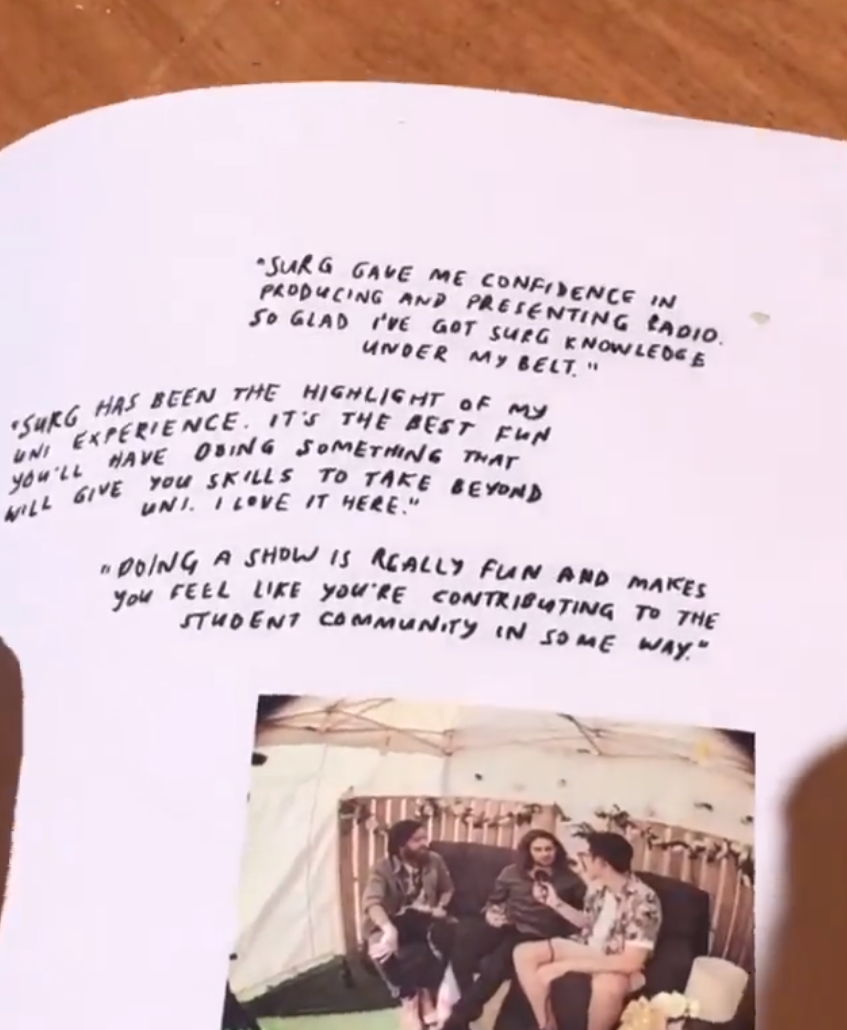 "SURG GAVE ME CONFIDENCE IN
PRODUCING AND PRESENTING RADIO.
SO GLAD I'VE GOT SURG KNOWLEDGE
UNDER MY BELT."
"SURG HAS BEEN THE HIGHLIGHT OF MY
UNI EXPERIENCE. IT'S THE BEST FUN
YOU'LL HAVE DOING SOMETHING THAT
WILL GIVE YOU SKILLS TO TAKE BEYOND
UNI. I LOVE IT HERE."
"DOING A SHOW IS REALLY FUN AND MAKES
YOU FEEL LIKE YOU'RE CONTRIBUTING TO THE
STUDENT COMMUNITY IN SOME WAY."